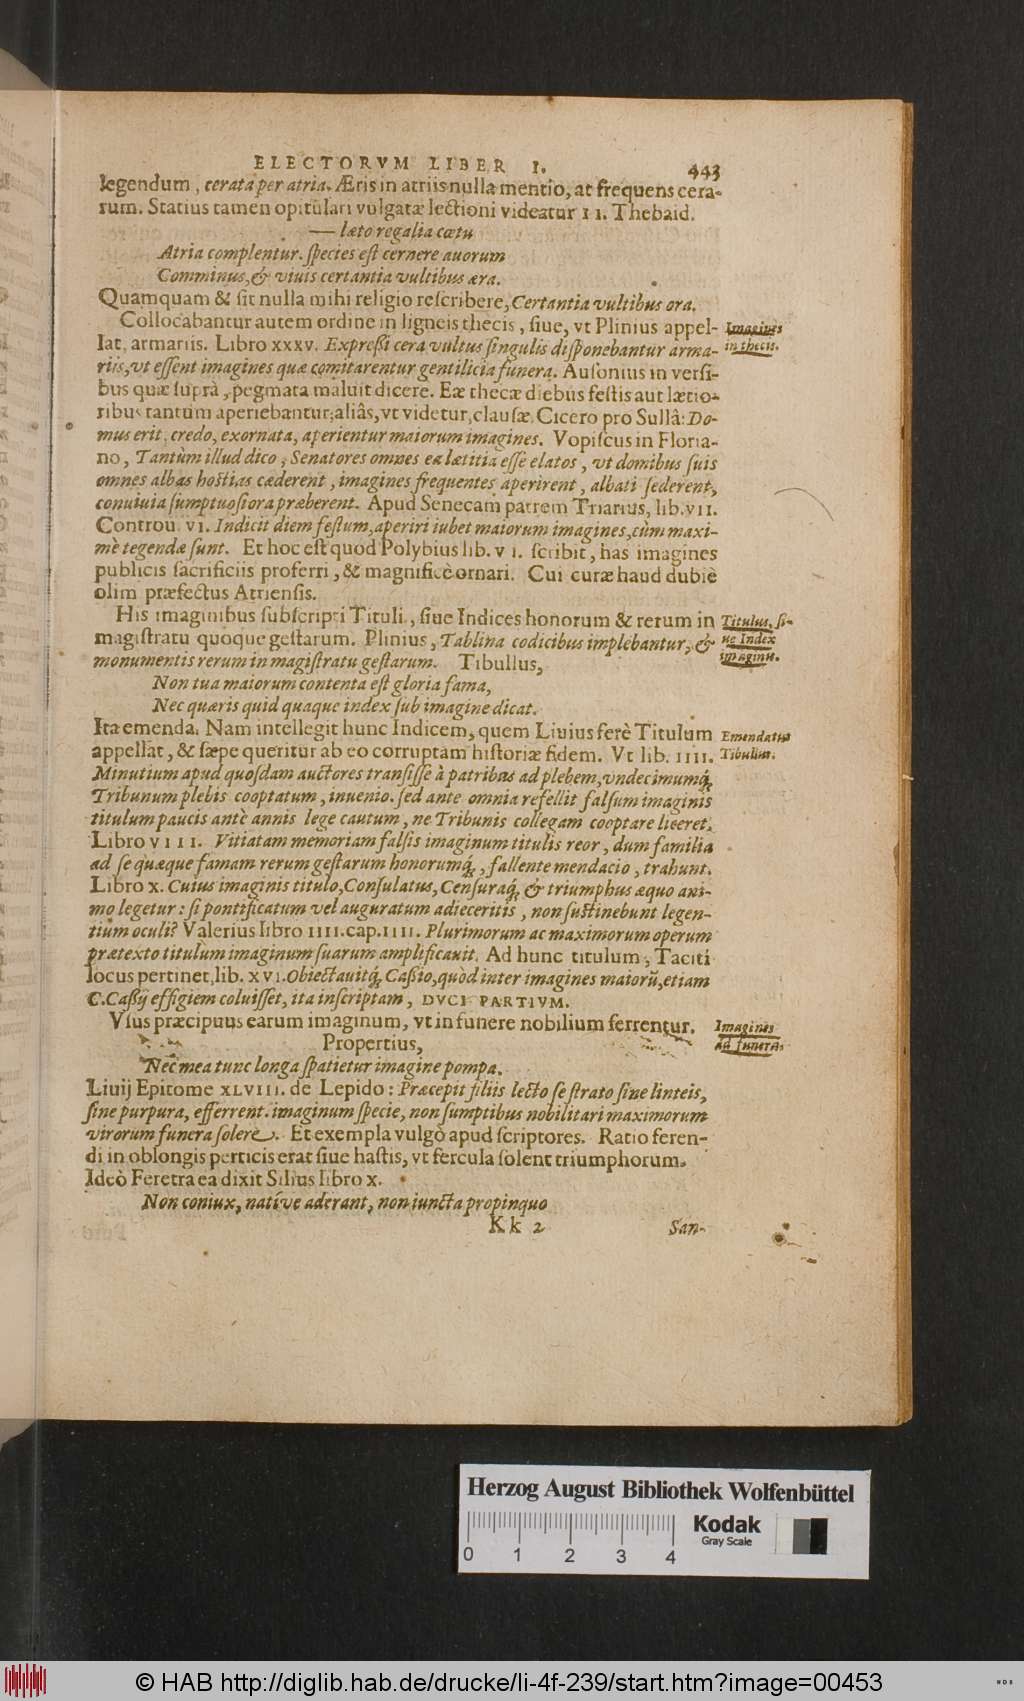 ELECTORVM LIBER I. 443
legendum, cerata per atria. Æris in atriis nulla mentio, at frequens cera-
rum. Statius tamen opitulari vulgatæ lectioni videatur II. Thebaid.
— læto regalia cœtu
Atria complentur. species est cernere auorum
Comminus, & viuis certantia vultibus æra.
Quamquam & sit nulla mihi religio rescribere, Certantia vultibus ora.
Collocabantur autem ordine in ligneis thecis, siue, vt Plinius appel-
Imagines
in thecis.
lat, armariis. Libro XXXV. Expreßi cera vultus singulis disponebantur arma-
riis, vt essent imagines quæ comitarentur gentilicia funera. Ausonius in versi-
bus quæ suprà, pegmata maluit dicere. Eæ thecæ diebus festis aut lætio-
ribus tantùm aperiebantur, aliâs, vt videtur, clausæ. Cicero pro Sullâ: Do-
mus erit, credo, exornata, aperientur maiorum imagines. Vopiscus in Floria-
no, Tantùm illud dico, Senatores omnes ea lætitia esse elatos, vt domibus suis
omnes albas hostias cæderent, imagines frequentes aperirent, albati sederent,
conuiuia sumptuosiora præberent. Apud Senecam patrem Triarius, lib. VII.
Controu. VI. Indicit diem festum, aperiri iubet maiorum imagines, cùm maxi-
mè tegendæ sunt. Et hoc est quod Polybius lib. VI. scribit, has imagines
publicis sacrificiis proferri, & magnificè ornari. Cui curæ haud dubiè
olim præfectus Atriensis.
His imaginibus subscripti Tituli, siue Indices honorum & rerum in
Titulus, si-
ue Index
imaginū.
magistratu quoque gestarum. Plinius, Tablina codicibus implebantur, &
monumentis rerum in magistratu gestarum. Tibullus,
Non tua maiorum contenta est gloria fama,
Nec quæris quid quaque index sub imagine dicat.
Ita emenda. Nam intellegit hunc Indicem, quem Liuius ferè Titulum
Emendatus
Tibullus.
appellat, & sæpe queritur ab eo corruptam historiæ fidem. Vt lib. IIII.
Minutium apud quosdam auctores transisse à patribus ad plebem, vndecimumq́;
Tribunum plebis cooptatum, inuenio. sed ante omnia refellit falsum imaginis
titulum paucis antè annis lege cautum, ne Tribunis collegam cooptare liceret.
Libro VIII. Vitiatam memoriam falsis imaginum titulis reor, dum familia
ad se quæque famam rerum gestarum honorumq́;, fallente mendacio, trahunt.
Libro X. Cuius imaginis titulo, Consulatus, Censuraq́; & triumphus æquo ani-
mo legetur: si pontificatum vel auguratum adieceritis, non sustinebunt legen-
tium oculi? Valerius libro IIII. cap. IIII. Plurimorum ac maximorum operum
prætexto titulum imaginum suarum amplificauit. Ad hunc titulum, Taciti
locus pertinet, lib. XVI. Obiectauitq́; Caßio, quòd inter imagines maiorū, etiam
C. Caßij effigiem coluisset, ita inscriptam, DVCI PARTIVM.
Vsus præcipuus earum imaginum, vt in funere nobilium ferrentur.
Imagines
ad funera.
Propertius,
Nec mea tunc longa spatietur imagine pompa.
Liuij Epitome XLVIII. de Lepido: Præcepit filiis lecto se strato sine linteis,
sine purpura, efferrent. imaginum specie, non sumptibus nobilitari maximorum
virorum funera solere. Et exempla vulgò apud scriptores. Ratio feren-
di in oblongis perticis erat siue hastis, vt fercula solent triumphorum.
Ideò Feretra ea dixit Silius libro X.
Non coniux, natíve aderant, non iuncta propinquo
Kk 2 San-
Herzog August Bibliothek Wolfenbüttel
Kodak
Gray Scale
0 1 2 3 4
© HAB http://diglib.hab.de/drucke/li-4f-239/start.htm?image=00453